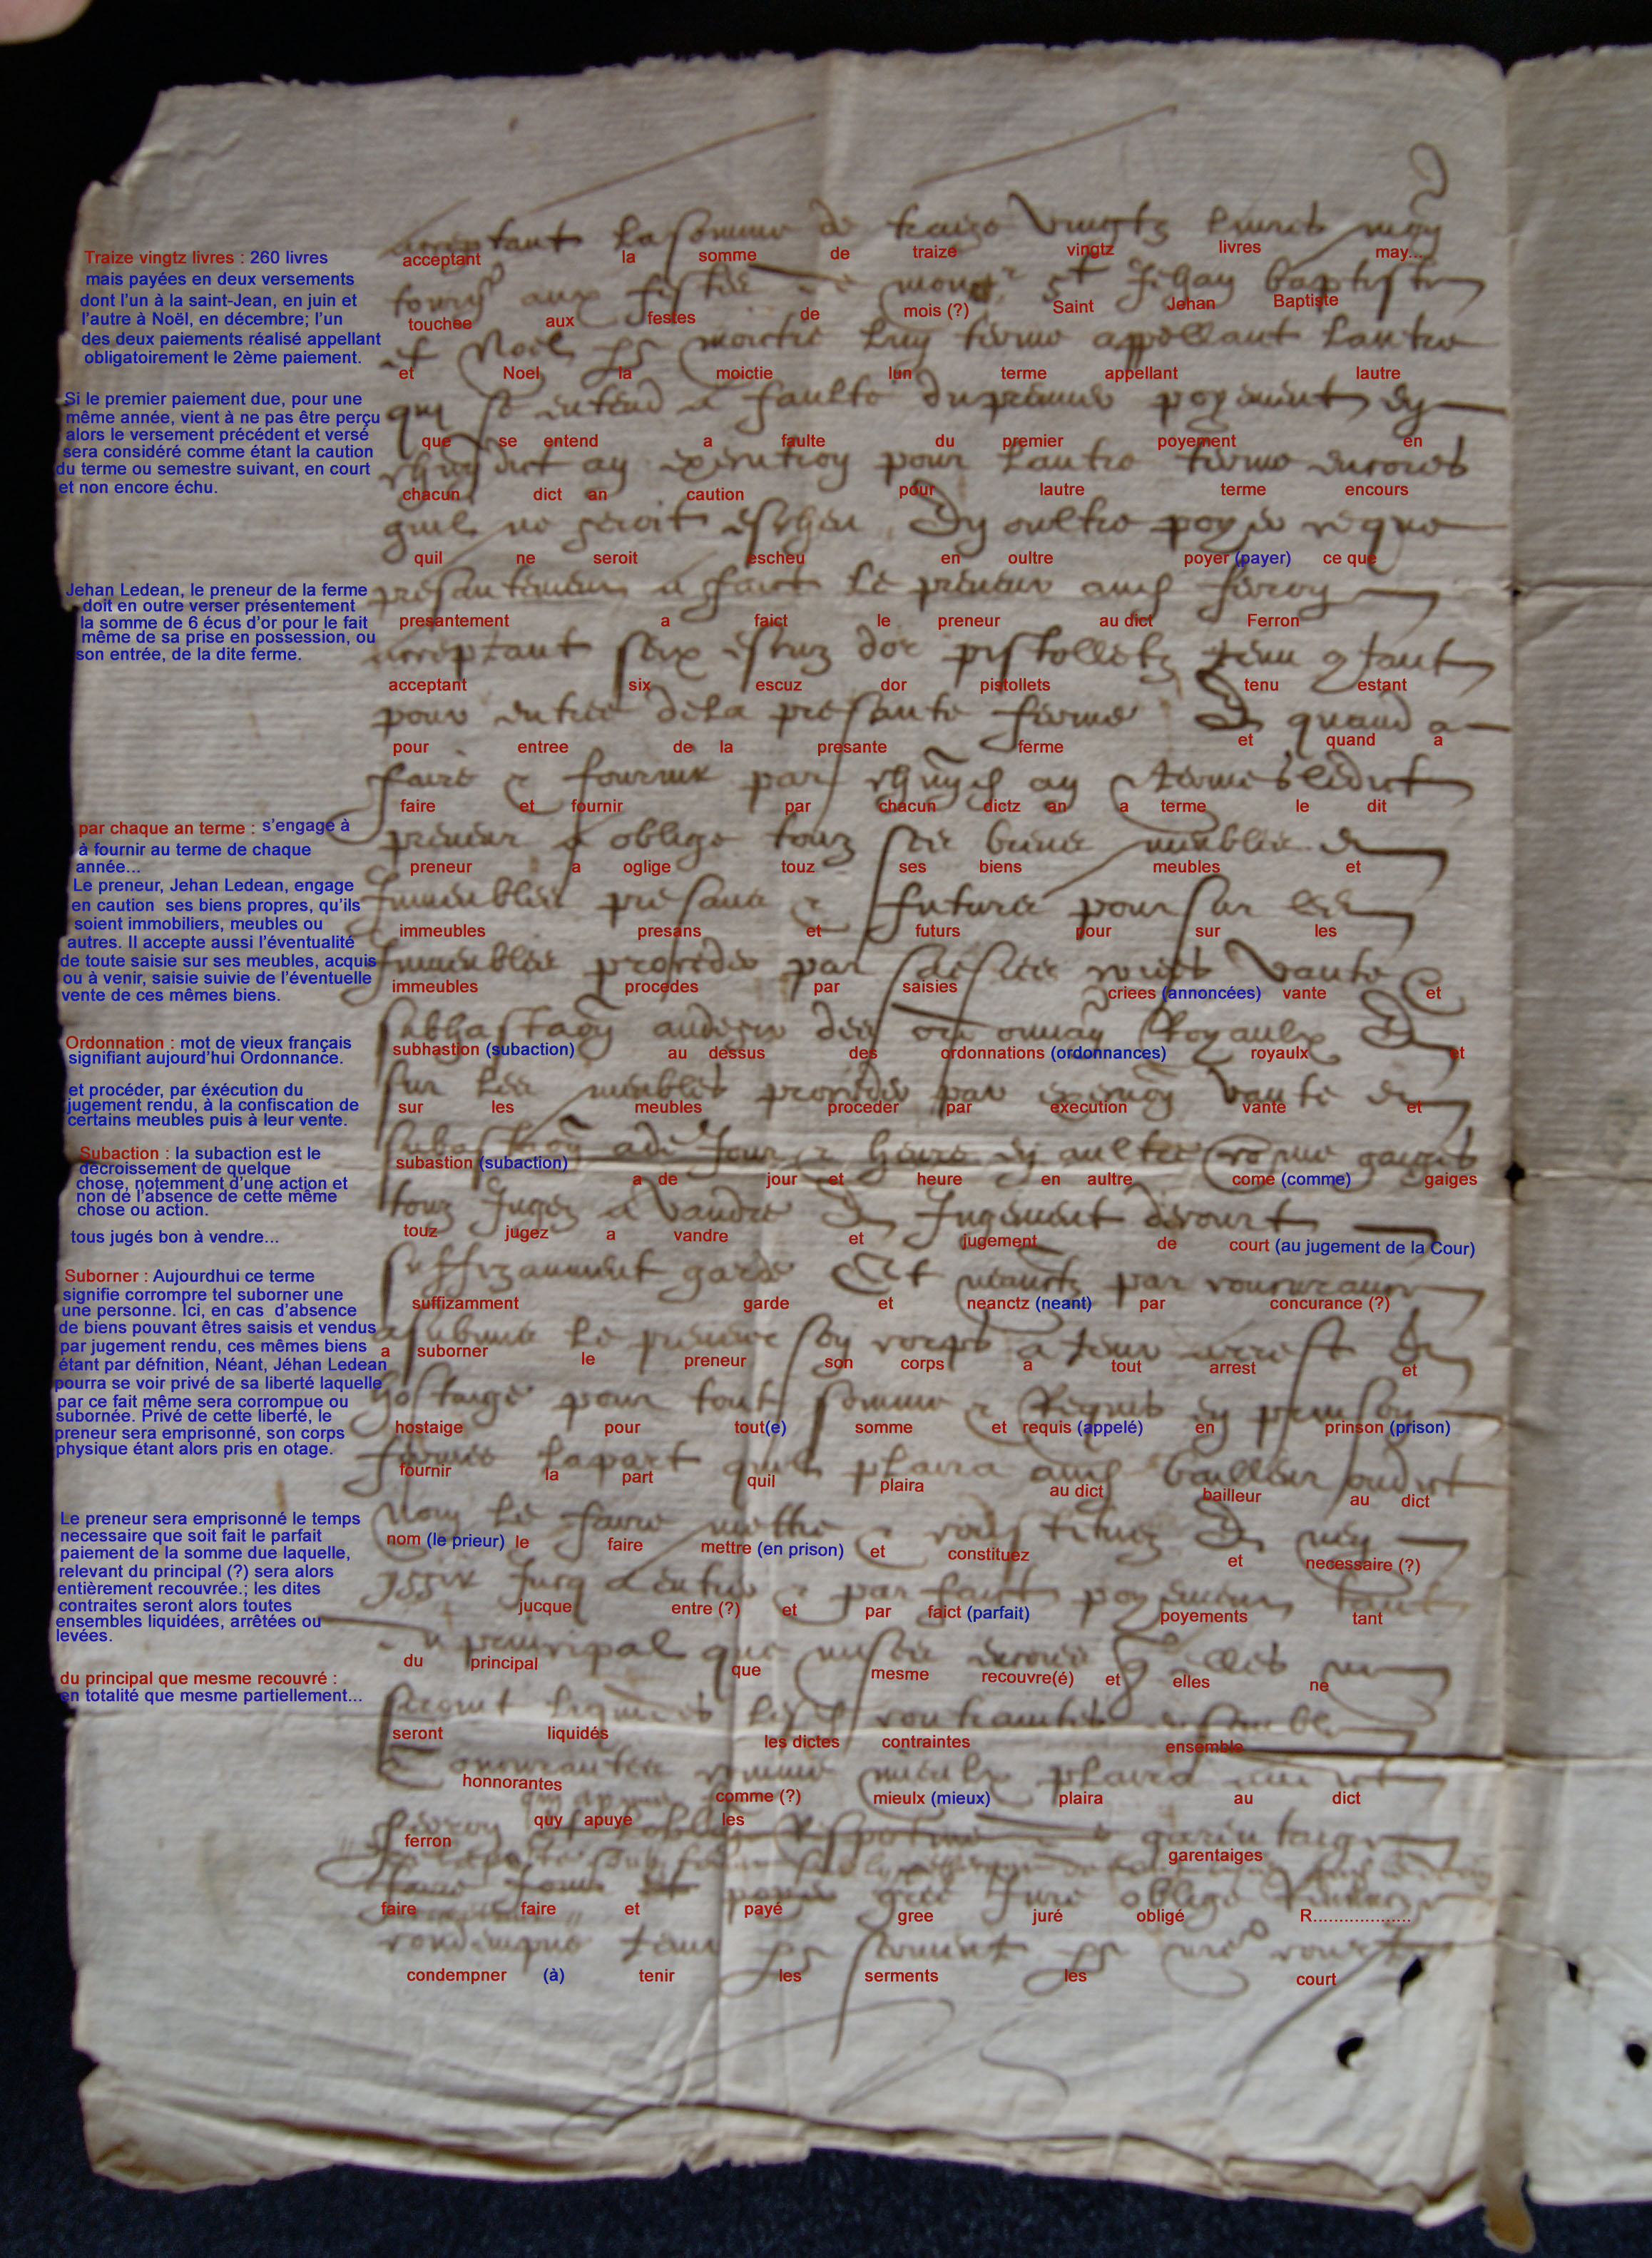 Traize vingtz livres : 260 livres
mais payées en deux versements
dont l'un à la saint-Jean, en juin et
l'autre à Noël, en décembre; l'un
des deux paiements réalisé appellant
obligatoirement le 2ème paiement.
Si le premier paiement due, pour une
même année, vient à ne pas être perçu
alors le versement précédent et versé
sera considéré comme étant la caution
du terme ou semestre suivant, en court
et non encore échu.
Jehan Ledean, le preneur de la ferme
doit en outre verser présentement
la somme de 6 écus d'or pour le fait
même de sa prise en possession, ou
son entrée, de la dite ferme.
par chaque an terme : s'engage à
à fournir au terme de chaque
année...
Le preneur, Jehan Ledean, engage
en caution ses biens propres, qu'ils
soient immobiliers, meubles ou
autres. Il accepte aussi l'éventualité
de toute saisie sur ses meubles, acquis
ou à venir, saisie suivie de l'éventuelle
vente de ces mêmes biens.
Ordonnation : mot de vieux français
signifiant aujourd'hui Ordonnance.
et procéder, par éxécution du
jugement rendu, à la confiscation de
certains meubles puis à leur vente.
Subaction : la subaction est le
décroissement de quelque
chose, notemment d'une action et
non de l'absence de cette même
chose ou action.
tous jugés bon à vendre...
Suborner : Aujourdhui ce terme
signifie corrompre tel suborner une
une personne. Ici, en cas d'absence
de biens pouvant êtres saisis et vendus
par jugement rendu, ces mêmes biens
étant par défnition, Néant, Jéhan Ledean
pourra se voir privé de sa liberté laquelle
par ce fait même sera corrompue ou
subornée. Privé de cette liberté, le
preneur sera emprisonné, son corps
physique étant alors pris en otage.
Le preneur sera emprisonné le temps
necessaire que soit fait le parfait
paiement de la somme due laquelle,
relevant du principal (?) sera alors
entièrement recouvrée.; les dites
contraites seront alors toutes
ensembles liquidées, arrêtées ou
levées.
du principal que mesme recouvré :
en totalité que mesme partiellement...
acceptant la somme de traize vingtz livres may...
touchee aux festes de mois (?) Saint Jehan Baptiste
et Noel la moictie lun terme appellant lautre
que se entend a faulte du premier poyement en
chacun dict an caution pour lautre terme encours
quil ne seroit escheu en oultre poyer (payer) ce que
presantement a faict le preneur au dict Ferron
acceptant six escuz dor pistollets tenu estant
pour entree de la presante ferme et quand a
faire et fournir par chacun dictz an a terme le dit
preneur a oglige touz ses biens meubles et
immeubles presans et futurs pour sur les
immeubles procedes par saisies criees (annoncées) vante et
subhastion (subaction) au dessus des ordonnations (ordonnances) royaulx et
sur les meubles proceder par execution vante et
subastion (subaction) a de jour et heure en aultre comé (comme) gaiges
touz jugez a vandre et jugement de court (au jugement de la Cour)
suffizamment garde et neanctz (neant) par concurance (?)
a suborner le preneur son corps a tout arrest et
hostaige pour tout(e) somme et requis (appelé) en prinson (prison)
fournir la part quil plaira au dict bailleur au dict
nom (le prieur) le faire mettre (en prison) et constituez et necessaire (?)
jucque entre (?) et par faict (parfait) poyements tant
du principal que mesme recouvre(é) et elles ne
seront liquidés les dictes contraintes ensemble
honnorantes comme (?) mieulx (mieux) plaira au dict
quy apuye les
ferron garentaiges
faire faire et payé gree juré obligé R...................
condempner (à) tenir les serments les court